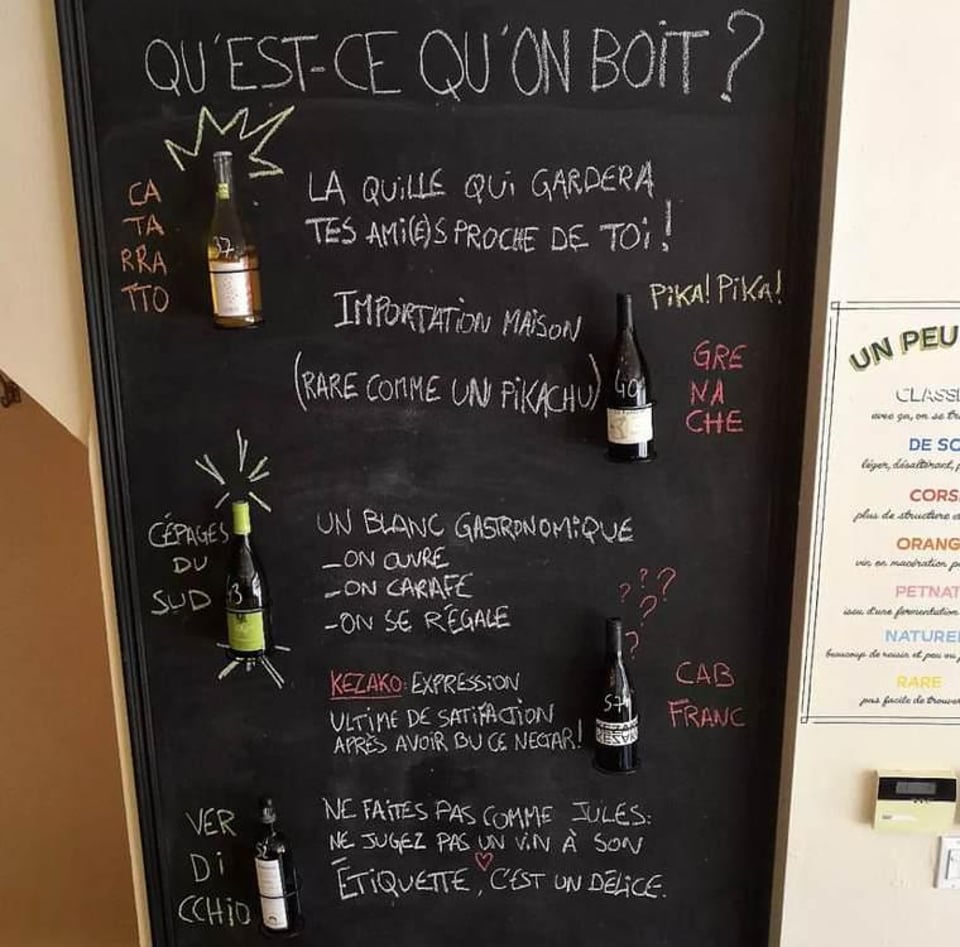 QU'EST-CE QU'ON BOIT ?
CA
TA
RRA
TTO
37
LA QUILLE QUI GARDERA
TES AMI(E)S PROCHE DE TOI !
IMPORTATION MAISON
(RARE COMME UN PIKACHU)
PIKA! PIKA!
GRE
NA
CHE
CÉPAGES
DU
SUD
UN BLANC GASTRONOMIQUE
-ON OUVRE
-ON CARAFE
-ON SE RÉGALE
? ? ?
?
?
KEZAKO: EXPRESSION
ULTIME DE SATIFACTION
APRÈS AVOIR BU CE NECTAR!
CAB
FRANC
57
VER
DI
CCHIO
NE FAITES PAS COMME JULES:
NE JUGEZ PAS UN VIN À SON
ÉTIQUETTE, C'EST UN DÉLICE.
UN PEU
CLASSI
avec ça, on se
DE SO
léger, désaltérant,
CORS
plus de structure
ORANG
vin en macération
PETNAT
issu d'une fermentation
NATURE
beaucoup de raisin et peu ou
RARE
pas facile de trouver